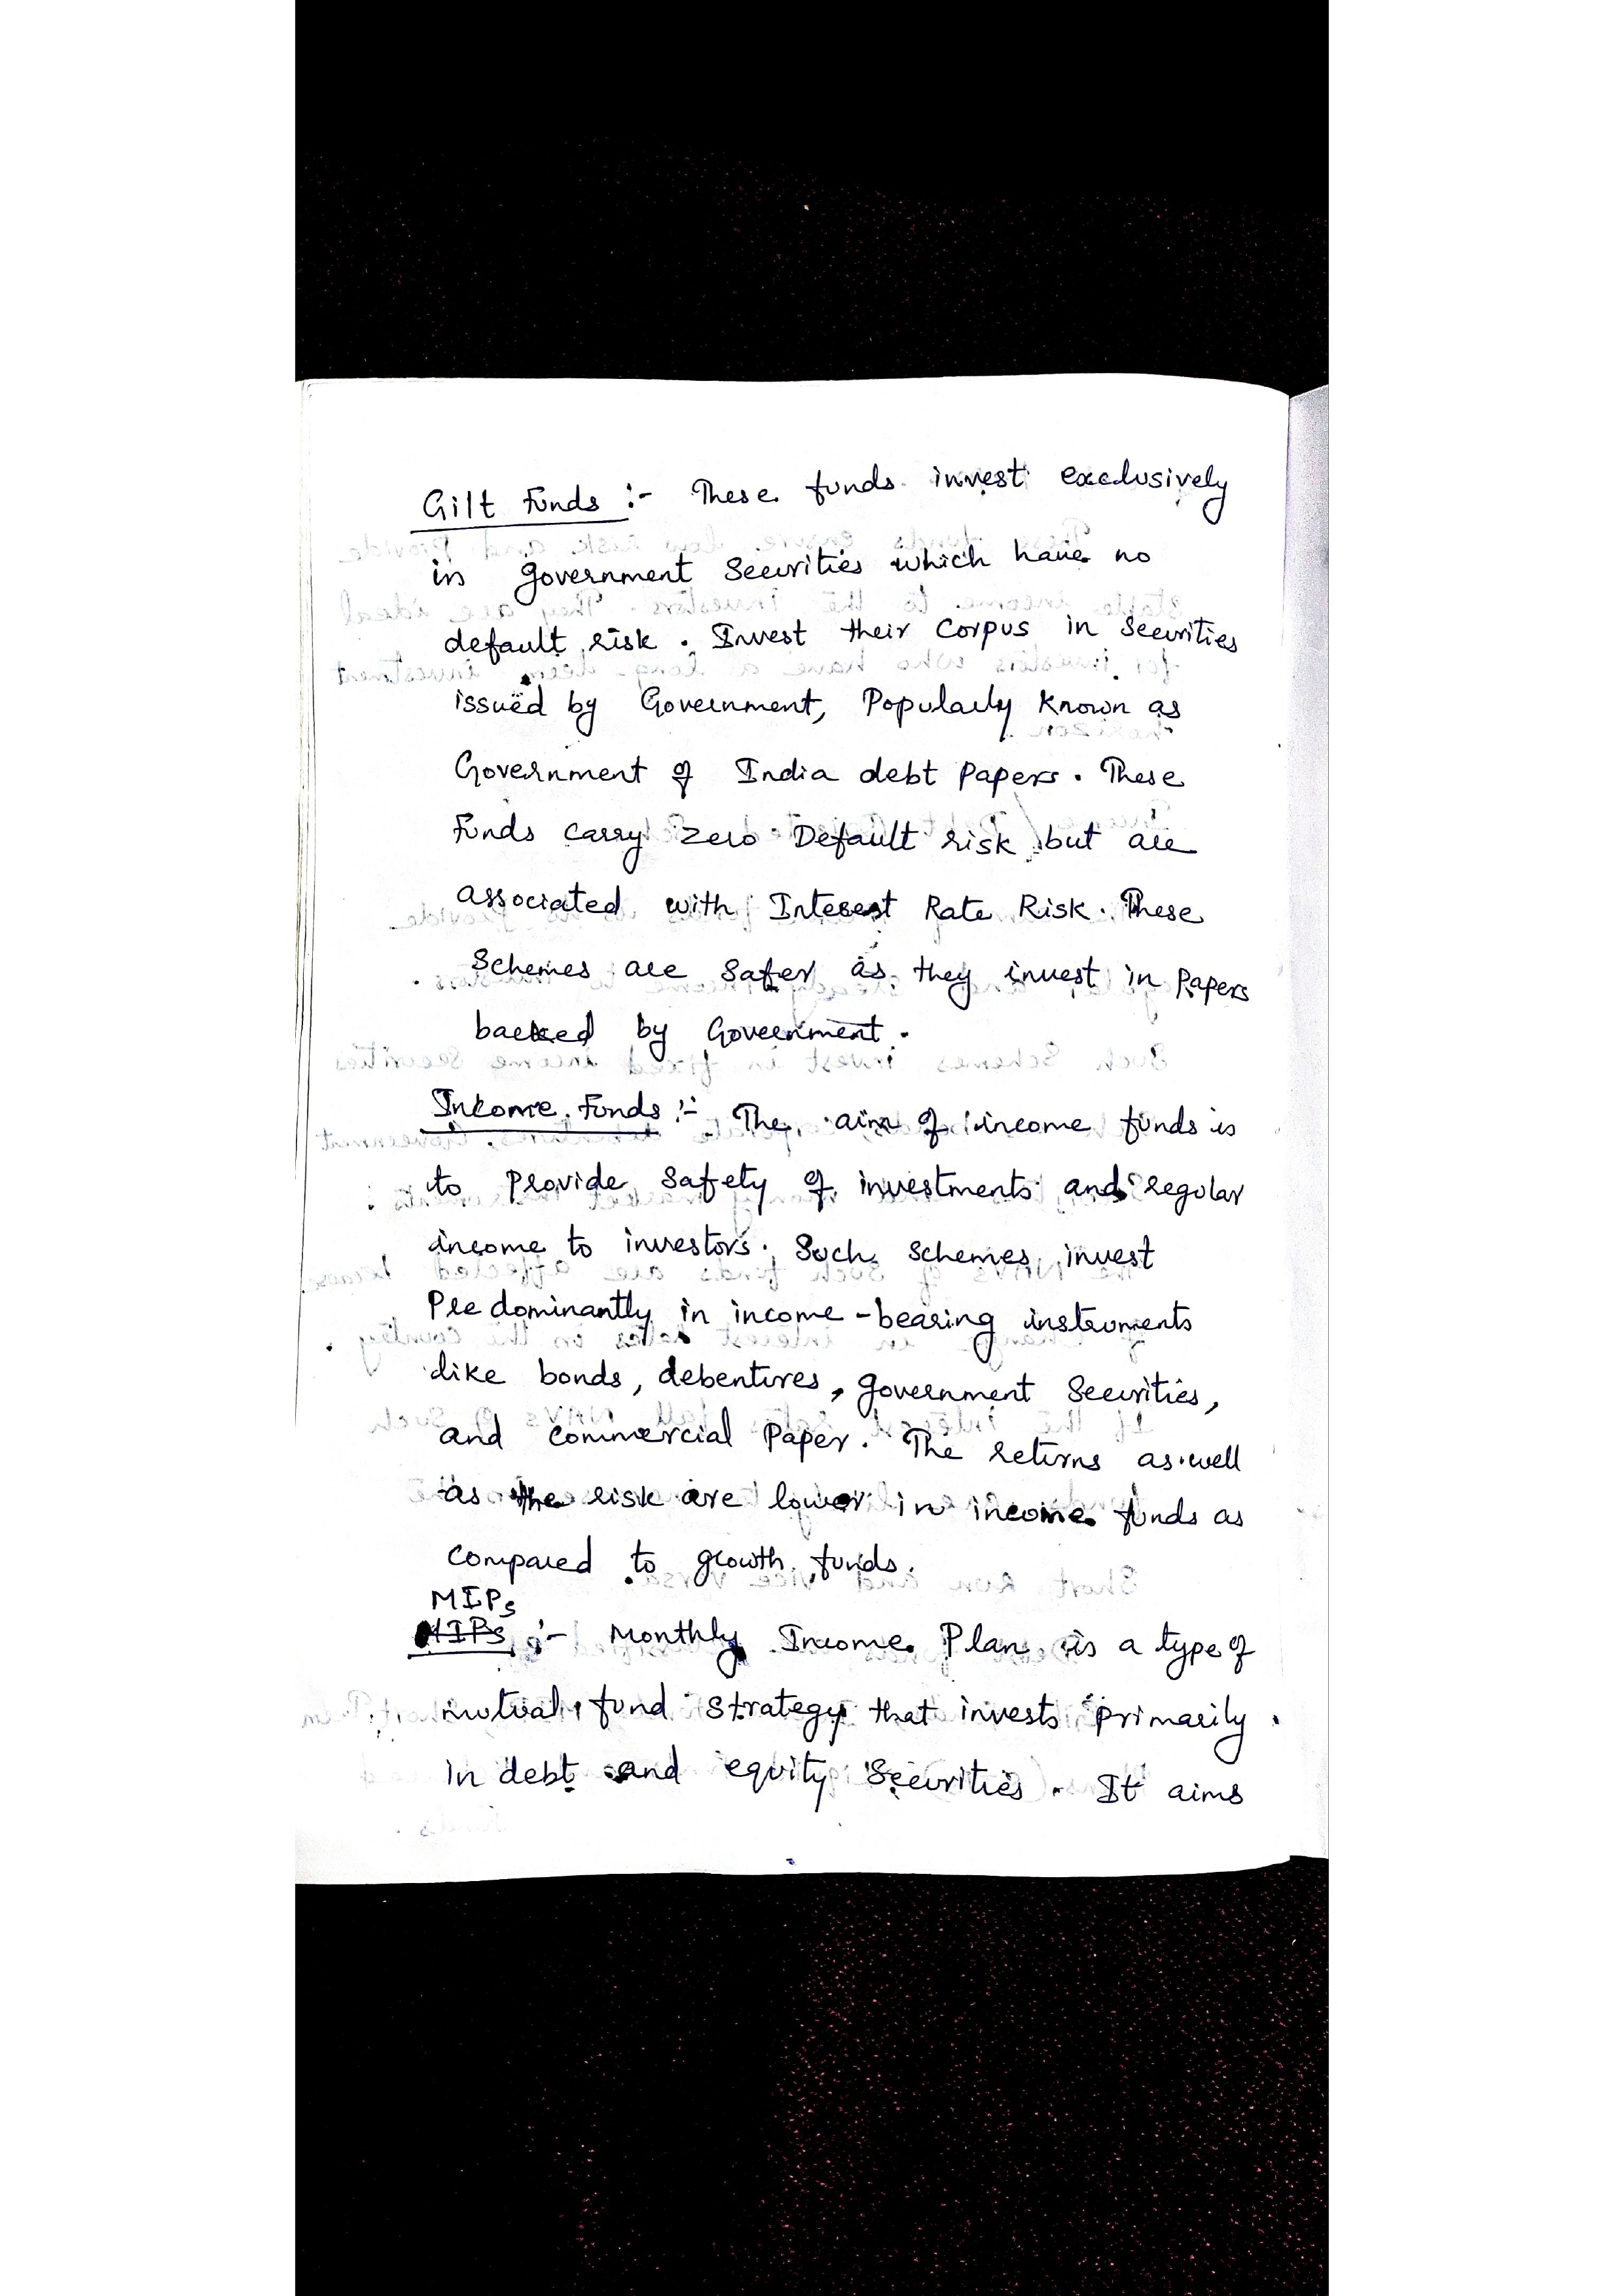 Gilt Funds :- These funds invest exclusively
in government Securities which have no
default risk. Invest their Corpus in Securities
issued by Government, Popularly Known as
Government of India debt Papers. These
Funds carry zero Default risk but are
associated with Interest Rate Risk. These
Schemes are Safer as they invest in Papers
backed by Government.
Income Funds :- The aim of income funds is
to Provide Safety of investments and regular
income to investors. Such Schemes invest
Predominantly in income-bearing instruments
like bonds, debentures, government Securities,
and commercial Paper. The returns as well
as the risk are lower in income funds as
compared to growth funds.
MIPs
MIPs :- Monthly Income Plan is a type of
mutual fund Strategy that invests primarily
in debt and equity Securities. It aims